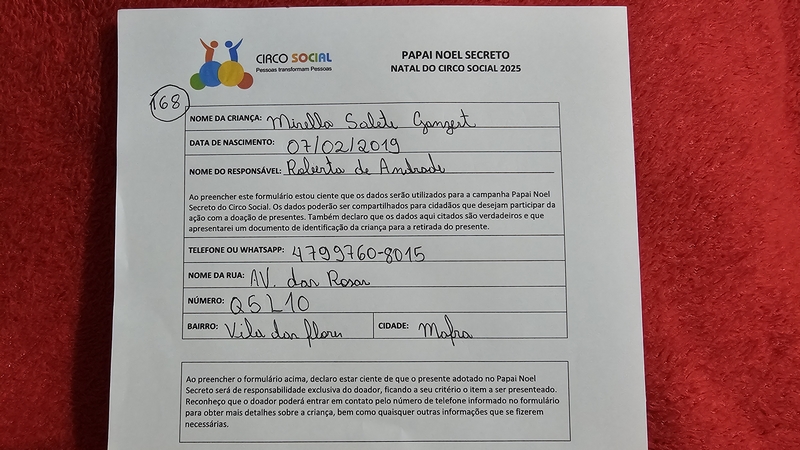 CIRCO SOCIAL
Pessoas transformam Pessoas
PAPAI NOEL SECRETO
NATAL DO CIRCO SOCIAL 2025
168
NOME DA CRIANÇA: Mirella Salete Ganzert
DATA DE NASCIMENTO: 07/02/2019
NOME DO RESPONSÁVEL: Roberta de Andrade
Ao preencher este formulário estou ciente que os dados serão utilizados para a campanha Papai Noel
Secreto do Circo Social. Os dados poderão ser compartilhados para cidadãos que desejam participar da
ação com a doação de presentes. Também declaro que os dados aqui citados são verdadeiros e que
apresentarei um documento de identificação da criança para a retirada do presente.
TELEFONE OU WHATSAPP: 4799760-8015
NOME DA RUA: AV. das Rosas
NÚMERO: Q5 L10
BAIRRO: Vila das flores CIDADE: Mafra
Ao preencher o formulário acima, declaro estar ciente de que o presente adotado no Papai Noel
Secreto será de responsabilidade exclusiva do doador, ficando a seu critério o item a ser presenteado.
Reconheço que o doador poderá entrar em contato pelo número de telefone informado no formulário
para obter mais detalhes sobre a criança, bem como quaisquer outras informações que se fizerem
necessárias.